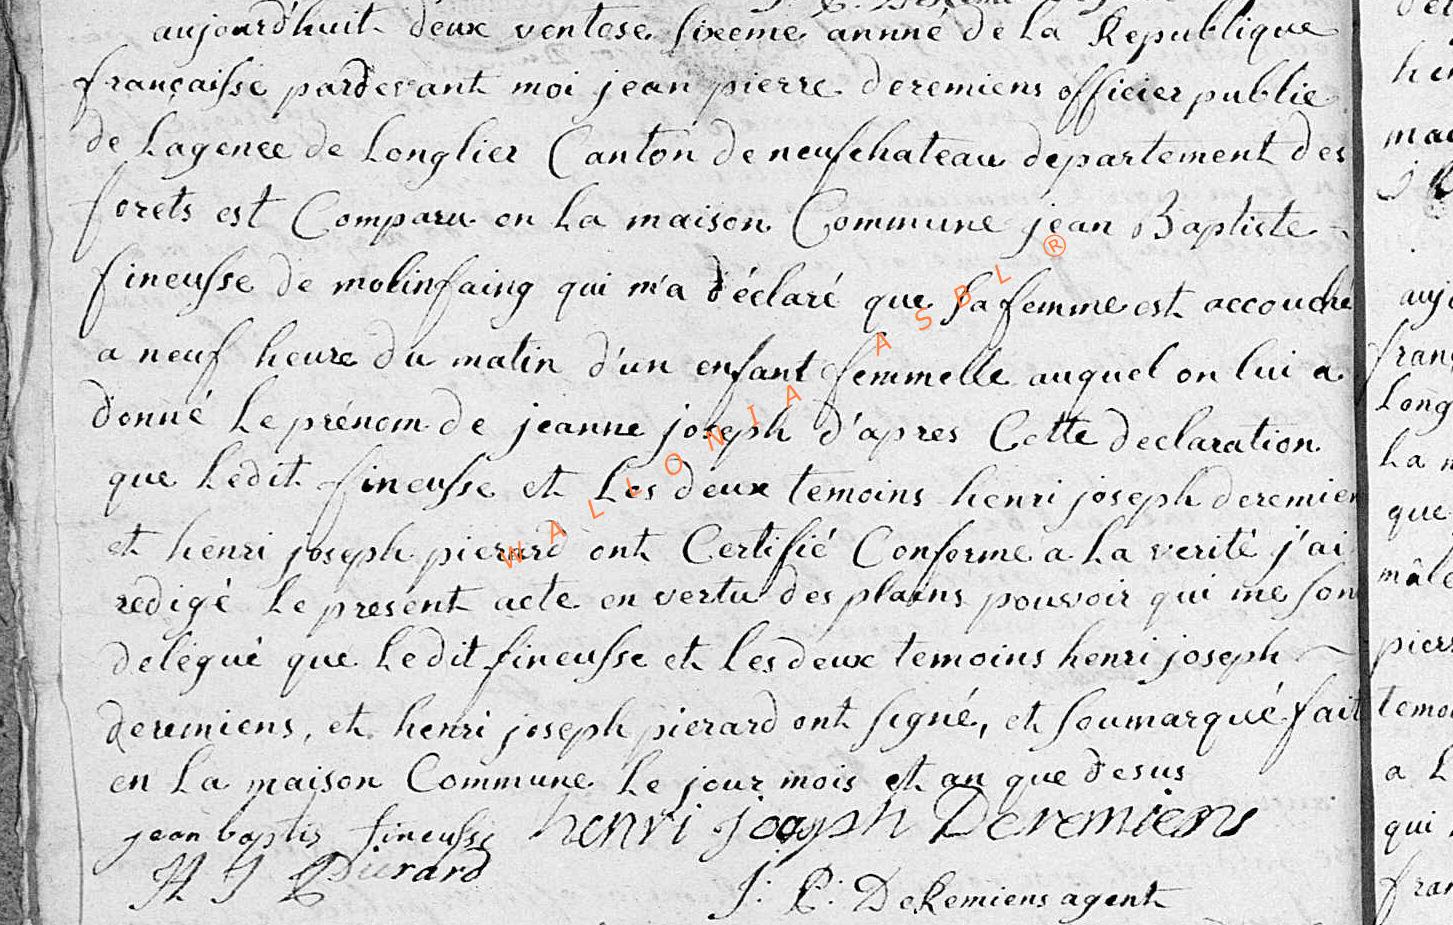 aujourd'huit deux ventose sixeme annné de la Republique
françaisse pardevant moi jean pierre deremiens officier publie
de Lagence de Longlier Canton de neufchateau departement des
forets est Comparu en La maison Commune jean Baptiste
fineusse de molinfaing qui m'a déclaré que sa femme est accouché
a neuf heure du matin d'un enfant femmelle auquel on lui a
donné Le prénom de jeanne joseph d'apres Cette declaration
que Ledit fineusse et Les deux temoins henri joseph deremien
et henri joseph pierard ont Certifié Conforme a La verité j'ai
redigé Le present acte en vertu des plains pouvoir qui me son
delégué que Ledit fineusse et les deux temoins henri joseph
deremiens, et henri joseph pierard ont signé, et soumarqué fait
en La maison Commune Le jour mois et an que desus
jean baptis fineusse henri joseph Deremiens
H J Pierard
J: P: DeRemiens agent
WALLONIA ASBL ®